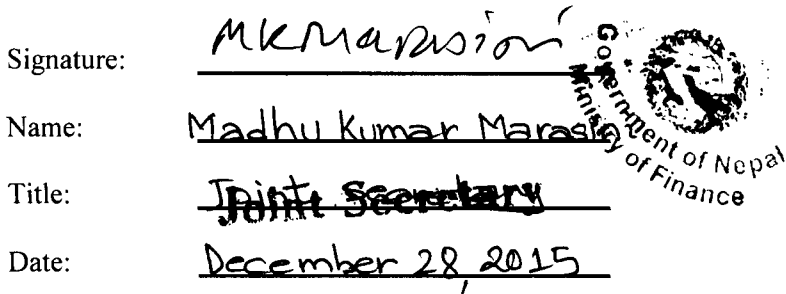 Signature: MKMarasini
Name: Madhu Kumar Marasini
Title: Joint Secretary
Date: December 28, 2015
Government of Nepal
Ministry of Finance